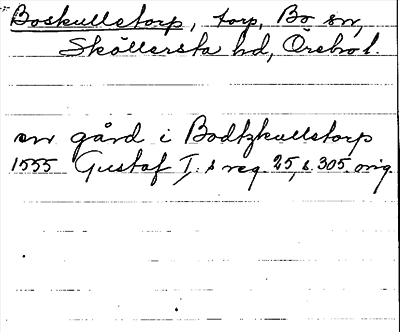 Boskullstorp, torp, Bo sn,
Sköllersta hd, Örebro l.
en gård i Bodtzkullstorp
1555 Gustaf I:s reg. 25, s. 305. orig.